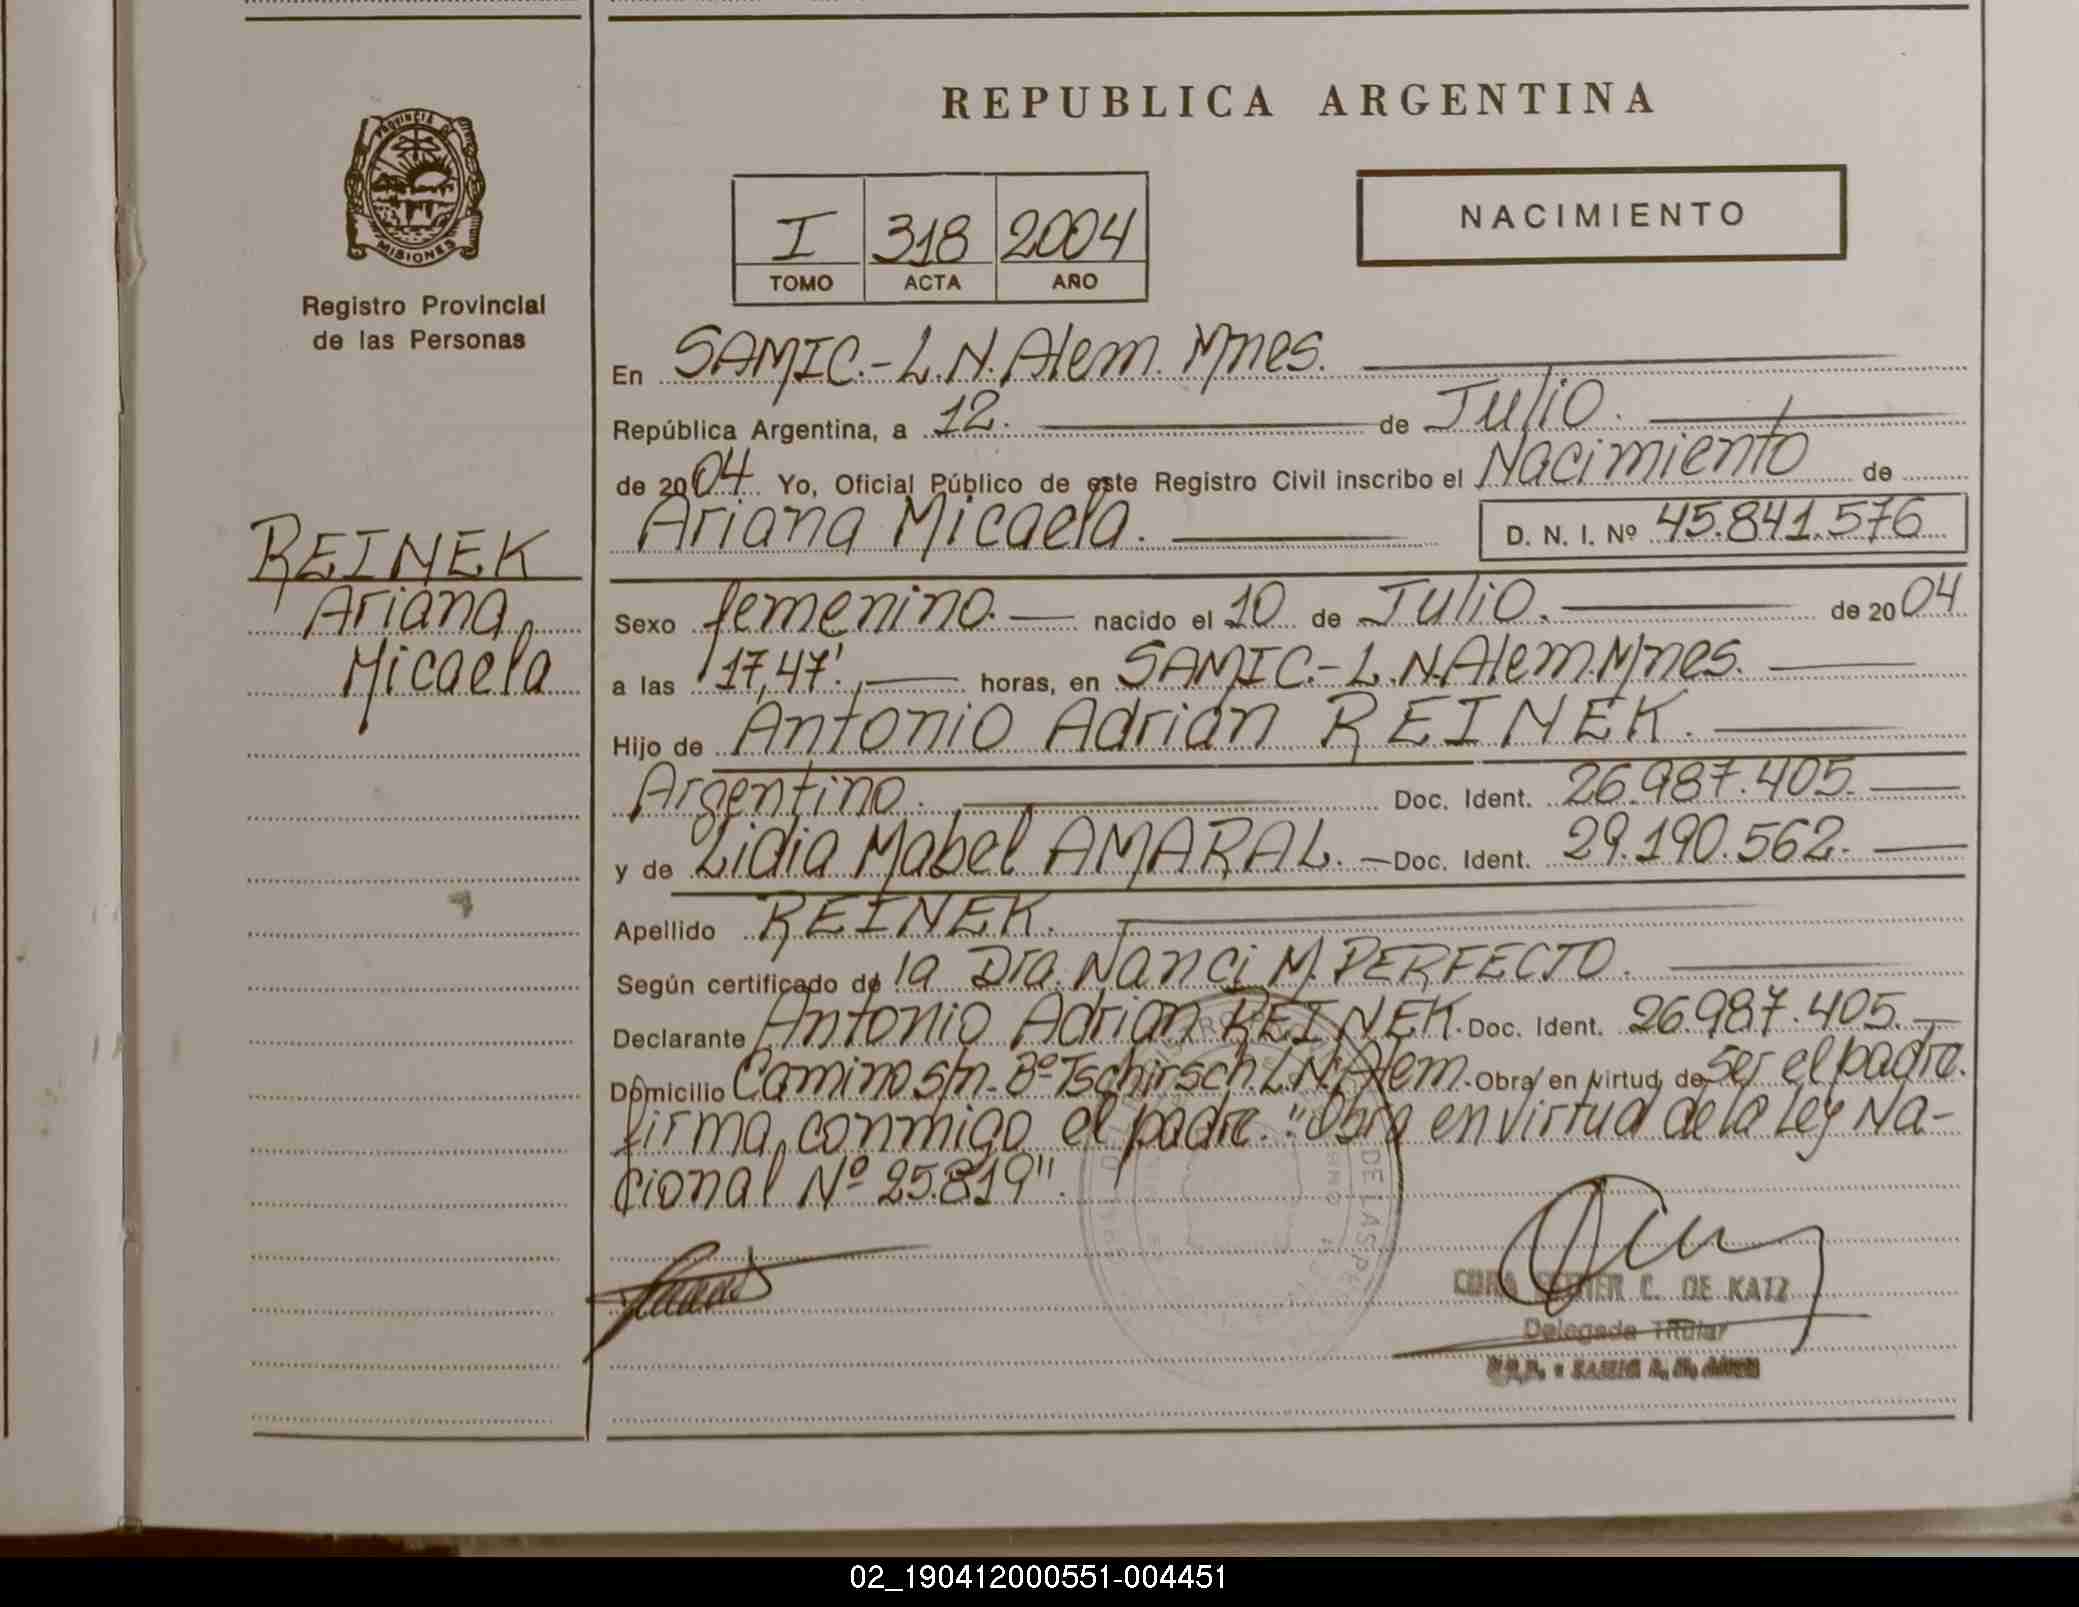 REPUBLICA ARGENTINA
PROVINCIA DE
MISIONES
Registro Provincial
de las Personas
I 318 2004
TOMO ACTA AÑO
NACIMIENTO
En SAMIC.-L.N.Alem. Mnes.
República Argentina, a 12. de Julio.
de 2004. Yo, Oficial Público de este Registro Civil inscribo el Nacimiento de
Ariana Micaela. D. N. I. Nº 45.841.576
REINEK
Ariana
Micaela
Sexo femenino. nacido el 10 de Julio. de 2004
a las 17,47'. horas, en SAMIC.-L.N.Alem.Mnes.
Hijo de Antonio Adrian REINEK.
Argentino. Doc. Ident. 26.987.405.
y de Lidia Mabel AMARAL. Doc. Ident. 29.190.562.
Apellido REINEK.
Según certificado de la Dra. Nanci M. PERFECTO.
Declarante Antonio Adrian REINEK. Doc. Ident. 26.987.405.
Domicilio Camino s/n.Bº Tschirsch.L.N.Alem. Obra en virtud de ser el padre.
firma conmigo el padre. "Obra en virtud de la Ley Na-
cional Nº 25.819".
CORA ESTHER C. DE KATZ
Delegada Titular
DE LAS
02_190412000551-004451